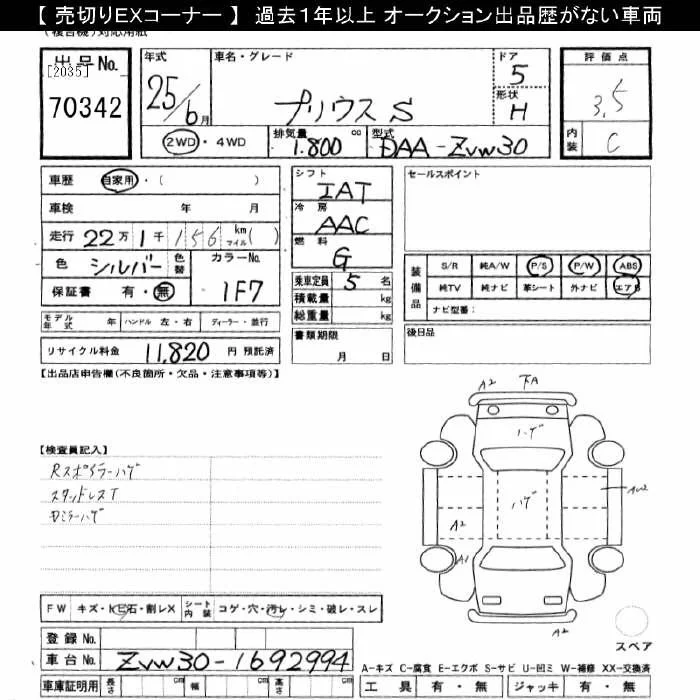 【 売切りEXコーナー 】 過去1年以上 オークション出品歴がない車両
(複合機)対応用紙
出品No.
[2035]
70342
年式
25/6月
車名・グレード
プリウス S
ドア
5
形状
H
評価点
3.5
内装
C
2WD ・ 4WD
排気量
1.800 cc
型式
DAA-ZVW30
車歴 自家用・( )
車検 年 月
走行 22万1千156 km マイル( )
色 シルバー 色替
カラーNo.
1F7
保証書 有・無
シフト
IAT
冷房
AAC
燃料
G
乗車定員 5 名
積載量 kg
総重量 kg
セールスポイント
装備品
S/R 純A/W P/S P/W ABS
純TV 純ナビ 革シート 外ナビ エアB
ナビ型番:
モデル年式 年 ハンドル 左・右 ディーラー・並行
リサイクル料金 11,820 円 預託済
書類期限
月 日
後日品
【出品店申告欄(不良箇所・欠品・注意事項等)】
A2 下A
ハゲ
【検査員記入】
Rスポイラーハゲ
スタッドレスT
ドミラーハゲ
ハゲ
AU2
A2
A1
A2
スペア
FW キズ・ヒ石・割レX シート内装 コゲ・穴・汚レ・シミ・破レ・スレ
登録No.
車台No. ZVW30-1692994
A-キズ C-腐食 E-エクボ S-サビ U-凹ミ W-補修 XX-交換済
車庫証明用 長さ cm 幅 cm 高さ cm
工具 有・無 ジャッキ 有・無